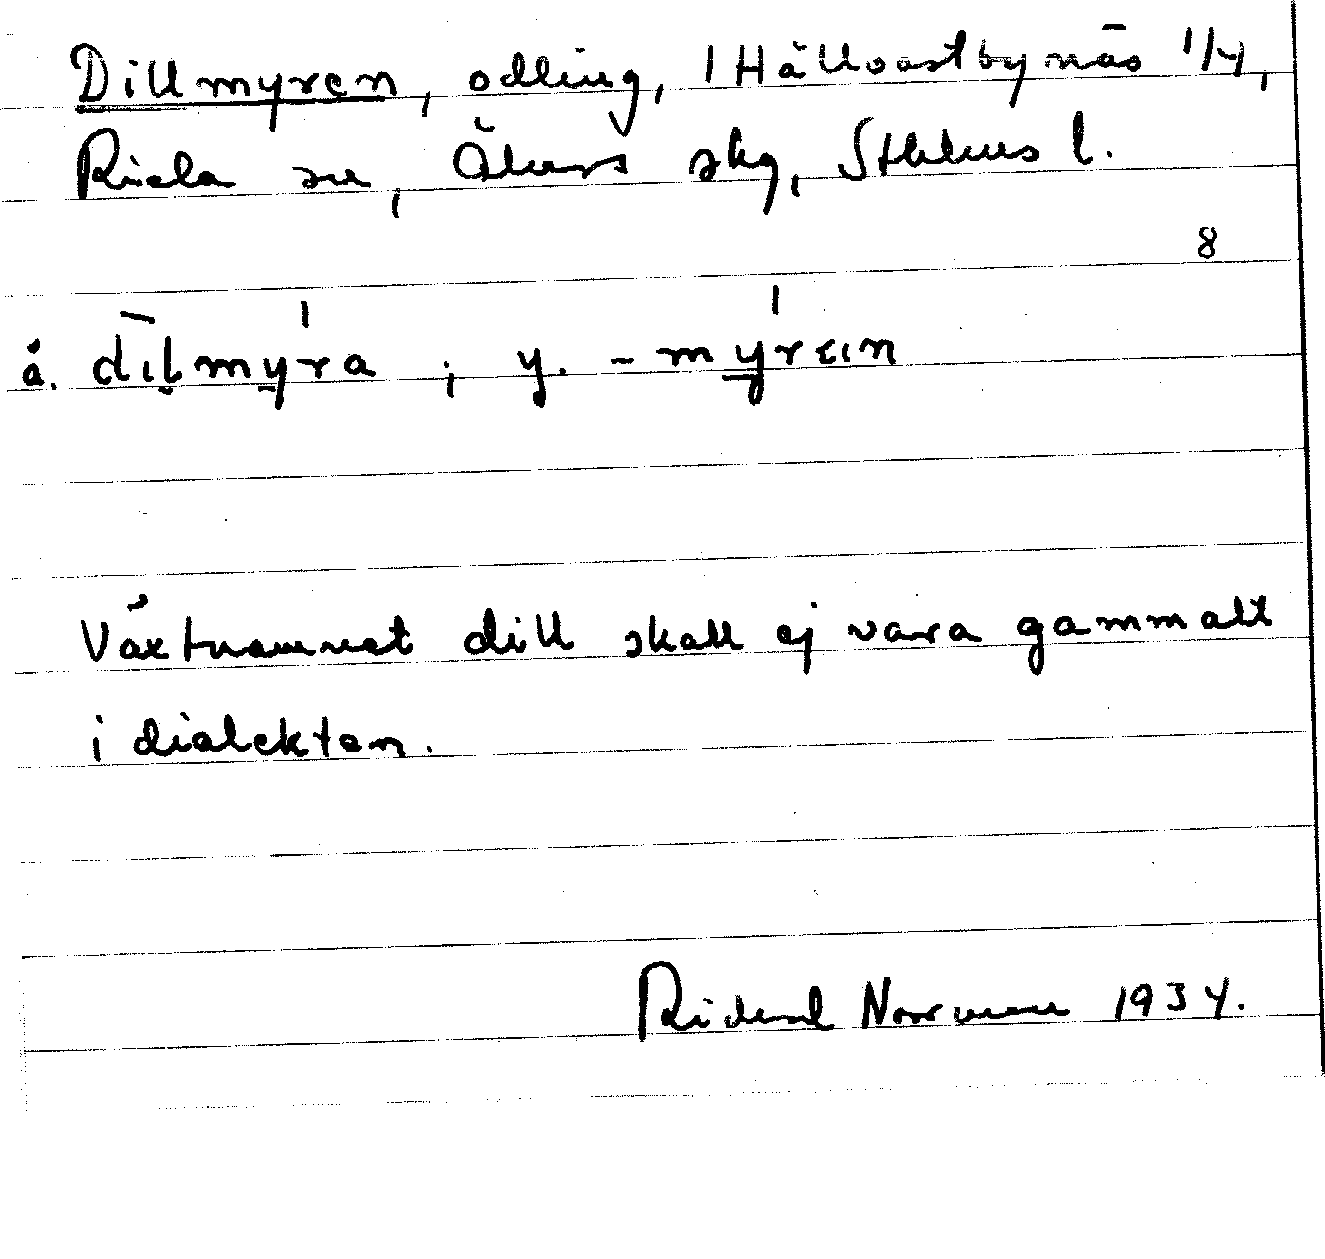 Dillmyren, odling, 1 Hällvastbynäs 1/4,
Riala sn, Åkers skg, Sthlms l.
8
å. dilmyra ; y. -myrεın
Växtnamnet dill skall ej vara gammalt
i dialekten.
Rickard Norrman 1934.